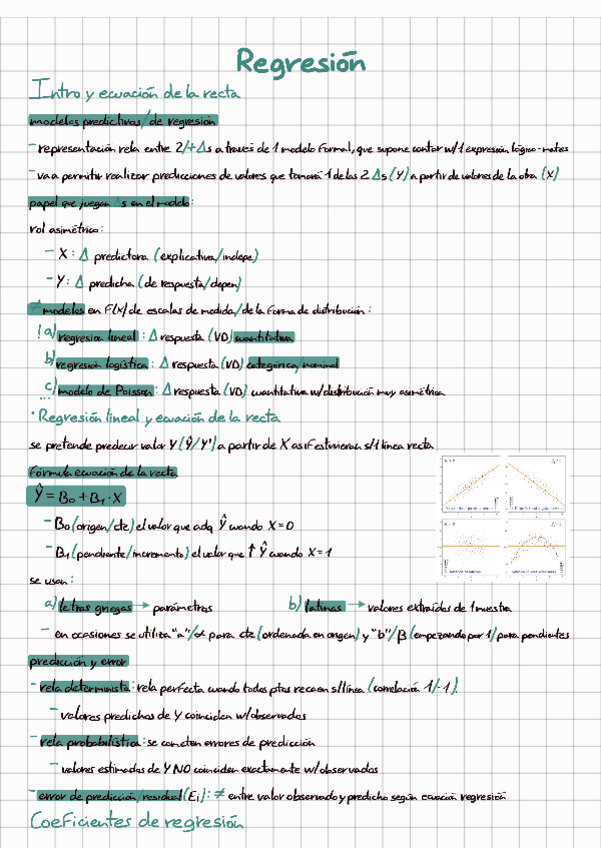 Regresión
Intro y ecuación de la recta
modelos predictivos/de regresión
- representación rela entre 2/+ Δs a través de 1 modelo formal, que supone contar w/1 expresión lógico-mates
- va a permitir realizar predicciones de valores que tomará 1 de las 2 Δs (Y) a partir de valores de la otra (X)
papel que juegan Δs en el modelo:
rol asimétrico:
- X: Δ predictora (explicativa/indepe)
- Y: Δ predicha (de respuesta/depen)
≠ modelos en F(x) de escalas de medida/de la forma de distribución:
! a) regresión lineal: Δ respuesta (VD) cuantitativa
b) regresión logística: Δ respuesta (VD) categórica/nominal
c) modelo de Poisson: Δ respuesta (VD) cuantitativa w/distribución muy asimétrica
...
· Regresión lineal y ecuación de la recta
se pretende predecir valor Y (Ŷ/Y') a partir de X as if estuvieran s/1 línea recta
fórmula ecuación de la recta
Ŷ = B₀ + B₁ · X
- B₀ (origen/cte) el valor que adq Ŷ cuando X=0
- B₁ (pendiente/incremento) el valor que ↑ Ŷ cuando X=1
se usan:
a) letras griegas → parámetros b) latinas → valores extraídos de 1 muestra
- en ocasiones se utiliza "a"/α para cte (ordenada en origen) y "b"/β (empezando por 1) para pendientes
predicción y error
- rela determinista: rela perfecta cuando todos ptos recaen s/línea (correlación 1/-1)
- valores predichos de Y coinciden w/observados
- rela probabilística: se cometen errores de predicción
- valores estimados de Y NO coinciden exactamente w/observados
- error de predicción/residual (Eᵢ): ≠ entre valor observado y predicho según ecuación regresión
Coeficientes de regresión